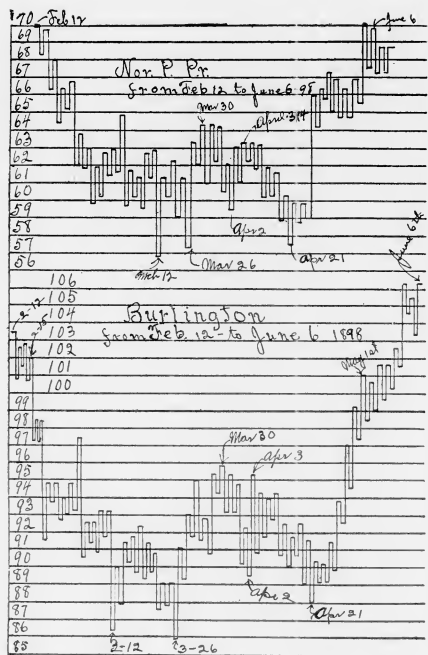 70 Feb 12
69
68
67
66
65
64
63
62
61
60
59
58
57
56
Nor. P. Pr.
from Feb 12 to June 6 98
June 6
Mar 30
April 3, 14
Apr 2
Mch 12
Mar 26
Apr 21
106
105
104
103
102
101
100
99
98
97
96
95
94
93
92
91
90
89
88
87
86
85
2-12
2-25
Burlington
from Feb. 12 - to June 6 1898
June 6th
May 1st
Mar 30
Apr 3
Apr 2
Apr 21
3-12
3-26